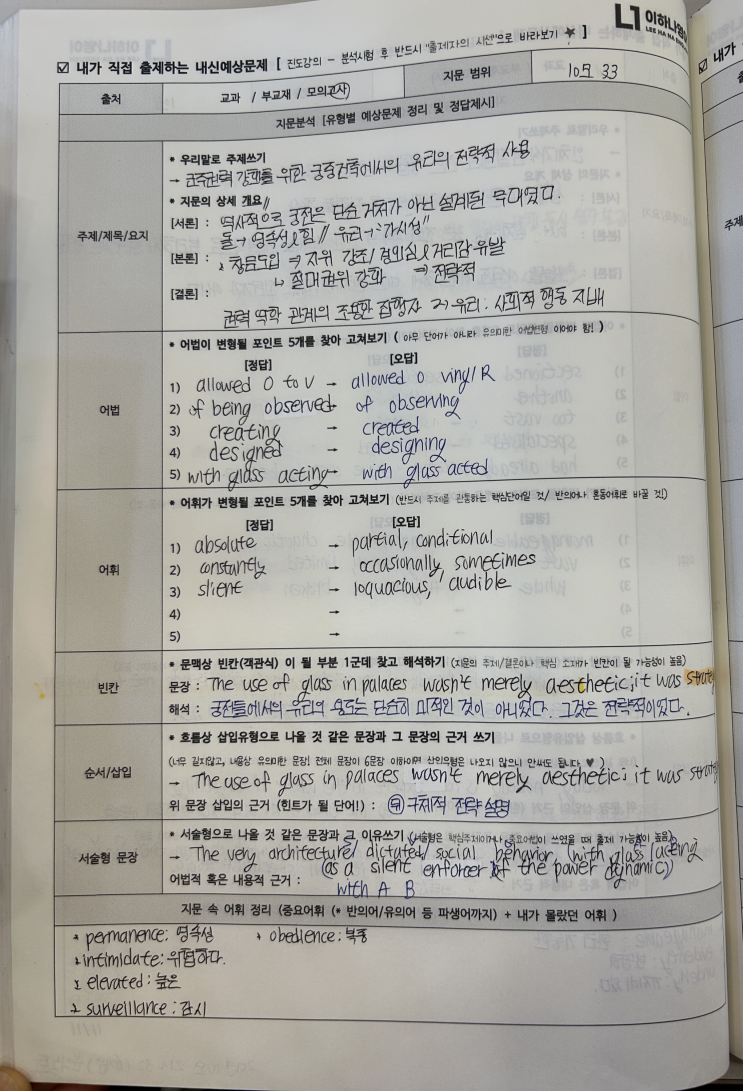 이하나영어
LEE HA NA
☑ 내가 직접 출제하는 내신예상문제 [ 진도강의 - 분석시험 후 반드시 "출제자의 시선"으로 바라보기 ★ ]
출처 교과 / 부교재 / 모의고사 지문 범위 10모 33
지문분석 [유형별 예상문제 정리 및 정답제시]
주제/제목/요지
* 우리말로 주제쓰기
→ 군주권력 강화를 위한 궁중건축에서의 유리의 전략적 사용
* 지문의 상세 개요
[서론] : 역사적으로 궁전은 단순 거처가 아닌 설계된 무대였다.
돌 → 영속성&힘 // 유리 → "가시성"
[본론] : 창문도입 ⇒ 지위 강조/경외심&거리감 유발
↳ 절대권위 강화 ⇒ 전략적
[결론] :
권력 역학 관계의 조용한 집행자 유리 : 사회적 행동 지배
어법
* 어법이 변형될 포인트 5개를 찾아 고쳐보기 ( 아무 단어가 아니라 유의미한 어법변형 이어야 함! )
[정답] [오답]
1) allowed O to V → allowed O ving/R
2) of being observed → of observing
3) creating → created
4) designed → designing
5) with glass acting → with glass acted
어휘
* 어휘가 변형될 포인트 5개를 찾아 고쳐보기 (반드시 주제를 관통하는 핵심단어일 것/ 반의어나 혼동어휘로 바꿀 것!)
[정답] [오답]
1) absolute → partial, conditional
2) constantly → occasionally, sometimes
3) slient → loquacious, audible
4) →
5) →
빈칸
* 문맥상 빈칸(객관식) 이 될 부분 1군데 찾고 해석하기 (지문의 주제/결론이나 핵심 소재가 빈칸이 될 가능성이 높음)
문장 : The use of glass in palaces wasn't merely aesthetic; it was strate
해석 : 궁전들에서의 유리의 용도는 단순히 미적인 것이 아니었다. 그것은 전략적이었다.
순서/삽입
* 흐름상 삽입유형으로 나올 것 같은 문장과 그 문장의 근거 쓰기
(너무 길지않고, 내용상 유의미한 문장! 전체 문장이 6문장 이하이면 삽입유형은 나오지 않으니 안써도 됩니다. ♥ )
→ The use of glass in palaces wasn't merely aesthetic; it was strate
위 문장 삽입의 근거 (힌트가 될 단어!) : 뒤 구체적 전략 설명
서술형 문장
* 서술형으로 나올 것 같은 문장과 그 이유쓰기 (서술형은 핵심주제이거나 중요어법이 쓰였을 때 출제 가능성이 높음)
→ The very architecture/ dictated/ social behavior, (with glass (acting
어법적 혹은 내용적 근거 : (as a silent enforcer of the power dynamic))
with A B
지문 속 어휘 정리 (중요어휘 (* 반의어/유의어 등 파생어까지) + 내가 몰랐던 어휘 )
permanence: 영속성 obedience: 복종
intimidate: 위협하다.
elevated: 높은
surveillance : 감시